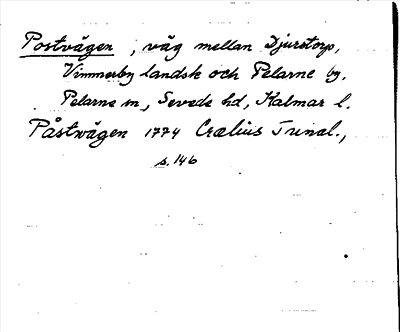 Postvägen, väg mellan Djurstorp,
Vimmerby landsk och Pelarne by,
Pelarne sn, Sevede hd, Kalmar l.
Påstwägen 1774 Crælius Tunal.,
s. 146